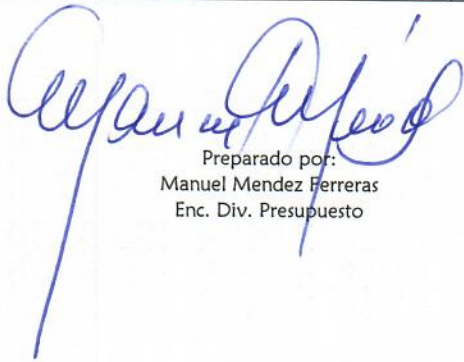 Preparado por:
Manuel Mendez Ferreras
Enc. Div. Presupuesto